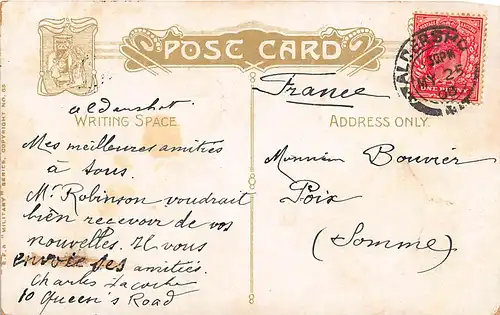 POST CARD
France
Aldershot
WRITING SPACE
Mes meilleures amitiés
à tous.
Mr Robinson voudrait
bien recevoir de vos
nouvelles. Il vous
envoie ses amitiés.
Charles Lacoche
10 Queen's Road
ADDRESS ONLY.
Monsieur Bouvier
Poix
(Somme)
ALDERSHO
MY 25
ONE PENNY
"MILITARY" SERIES, COPYRIGHT NO. 65